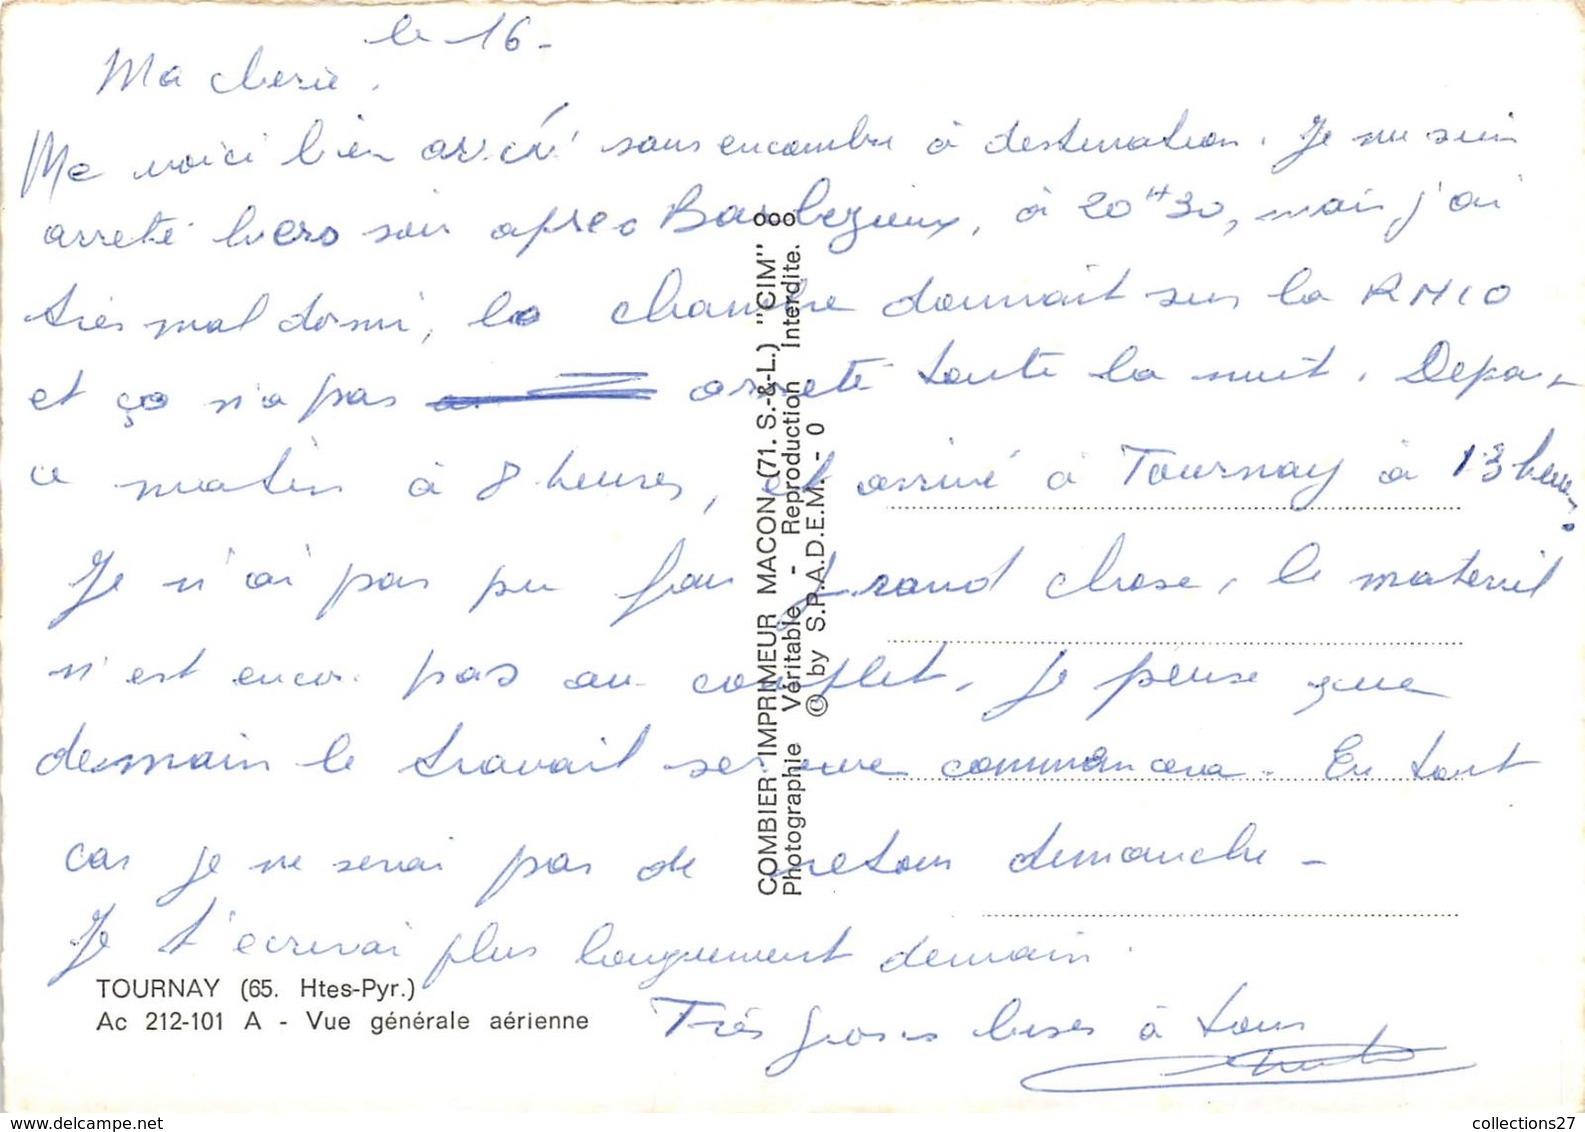 le 16-
Ma cherie,
Me voici bien arrivé sans encombre à destination. Je me suis
arreté hiero soir apres Barbezieux, à 20H30, mais j'ai
très mal dormi, la chambre donnait sur la RN10
et ça n'a pas arreté toute la nuit. Depar
ce matin à 8 heures, et arrivé à Tournay à 13 heures.
Je n'ai pas pu fair grand chose, le materiel
n'est encor pas au complet. Je pense que
demain le travail commancera. En tout
cas je ne serai pas de retour dimanche -
Je t'ecrirai plus longuement demain.
Très grosses bises à tous
TOURNAY (65. Htes-Pyr.)
Ac 212-101 A - Vue générale aérienne
COMBIER IMPRIMEUR MACON (71. S.-&-L.) "CIM" ooo
Photographie Véritable - Reproduction Interdite.
© by S.P.A.D.E.M. - 0
collections27